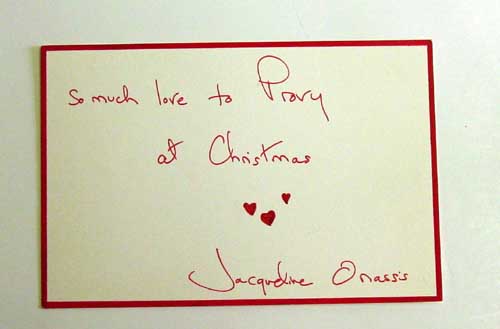 so much love to Provy
at Christmas
Jacqueline Onassis